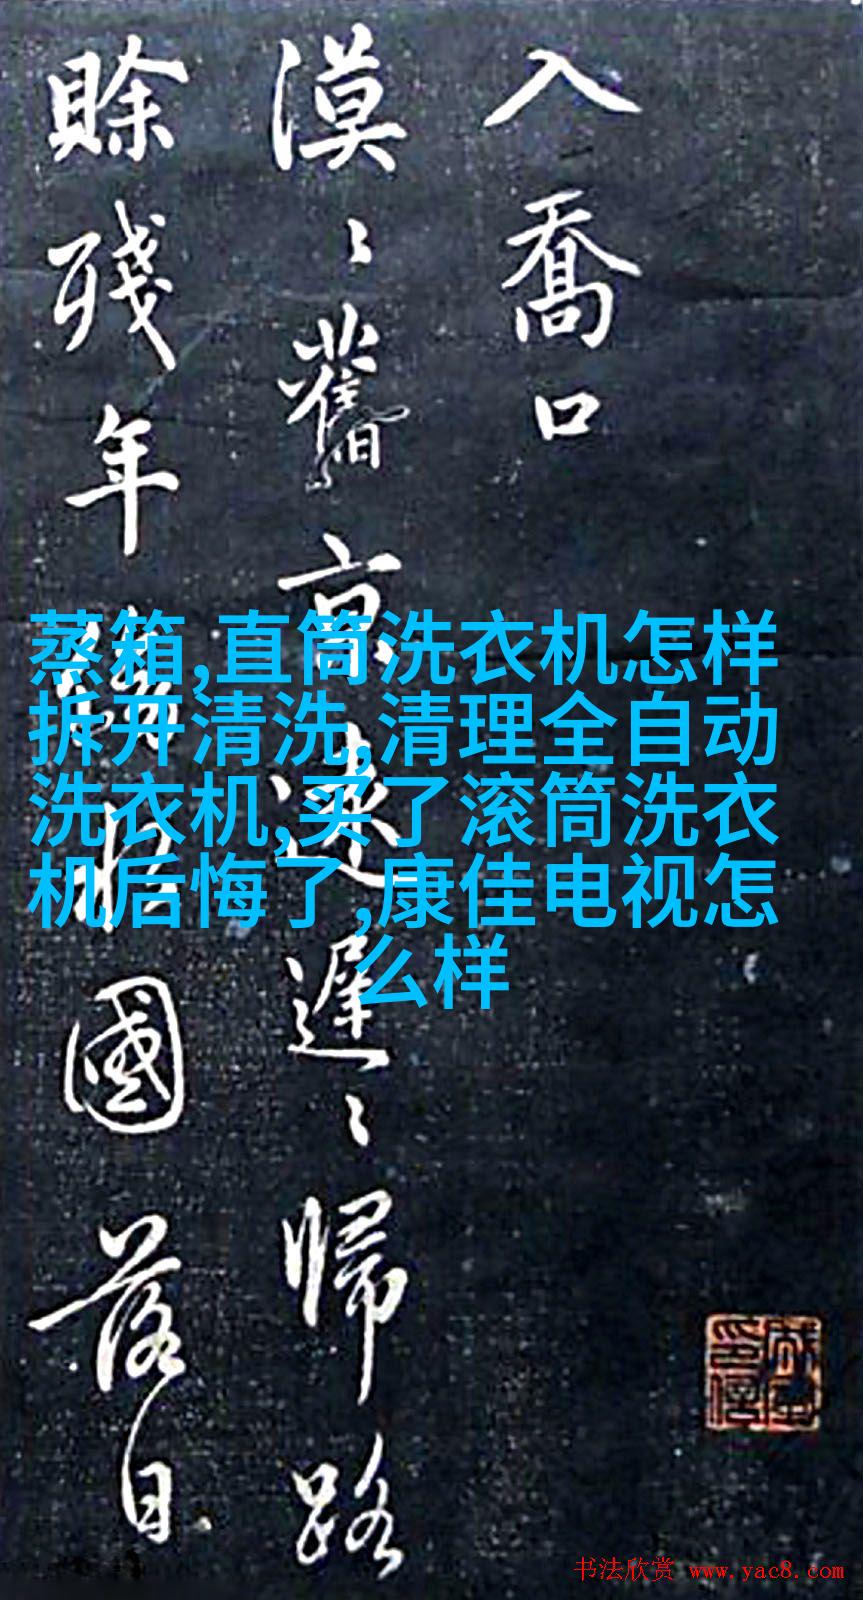 入喬口
漠〻舊京遠遲〻歸路
賒殘年傍水國落日
蒸箱,直筒洗衣机怎样
拆开清洗,清理全自动
洗衣机,买了滚筒洗衣
机后悔了,康佳电视怎
么样
书法欣赏 www.yac8.com